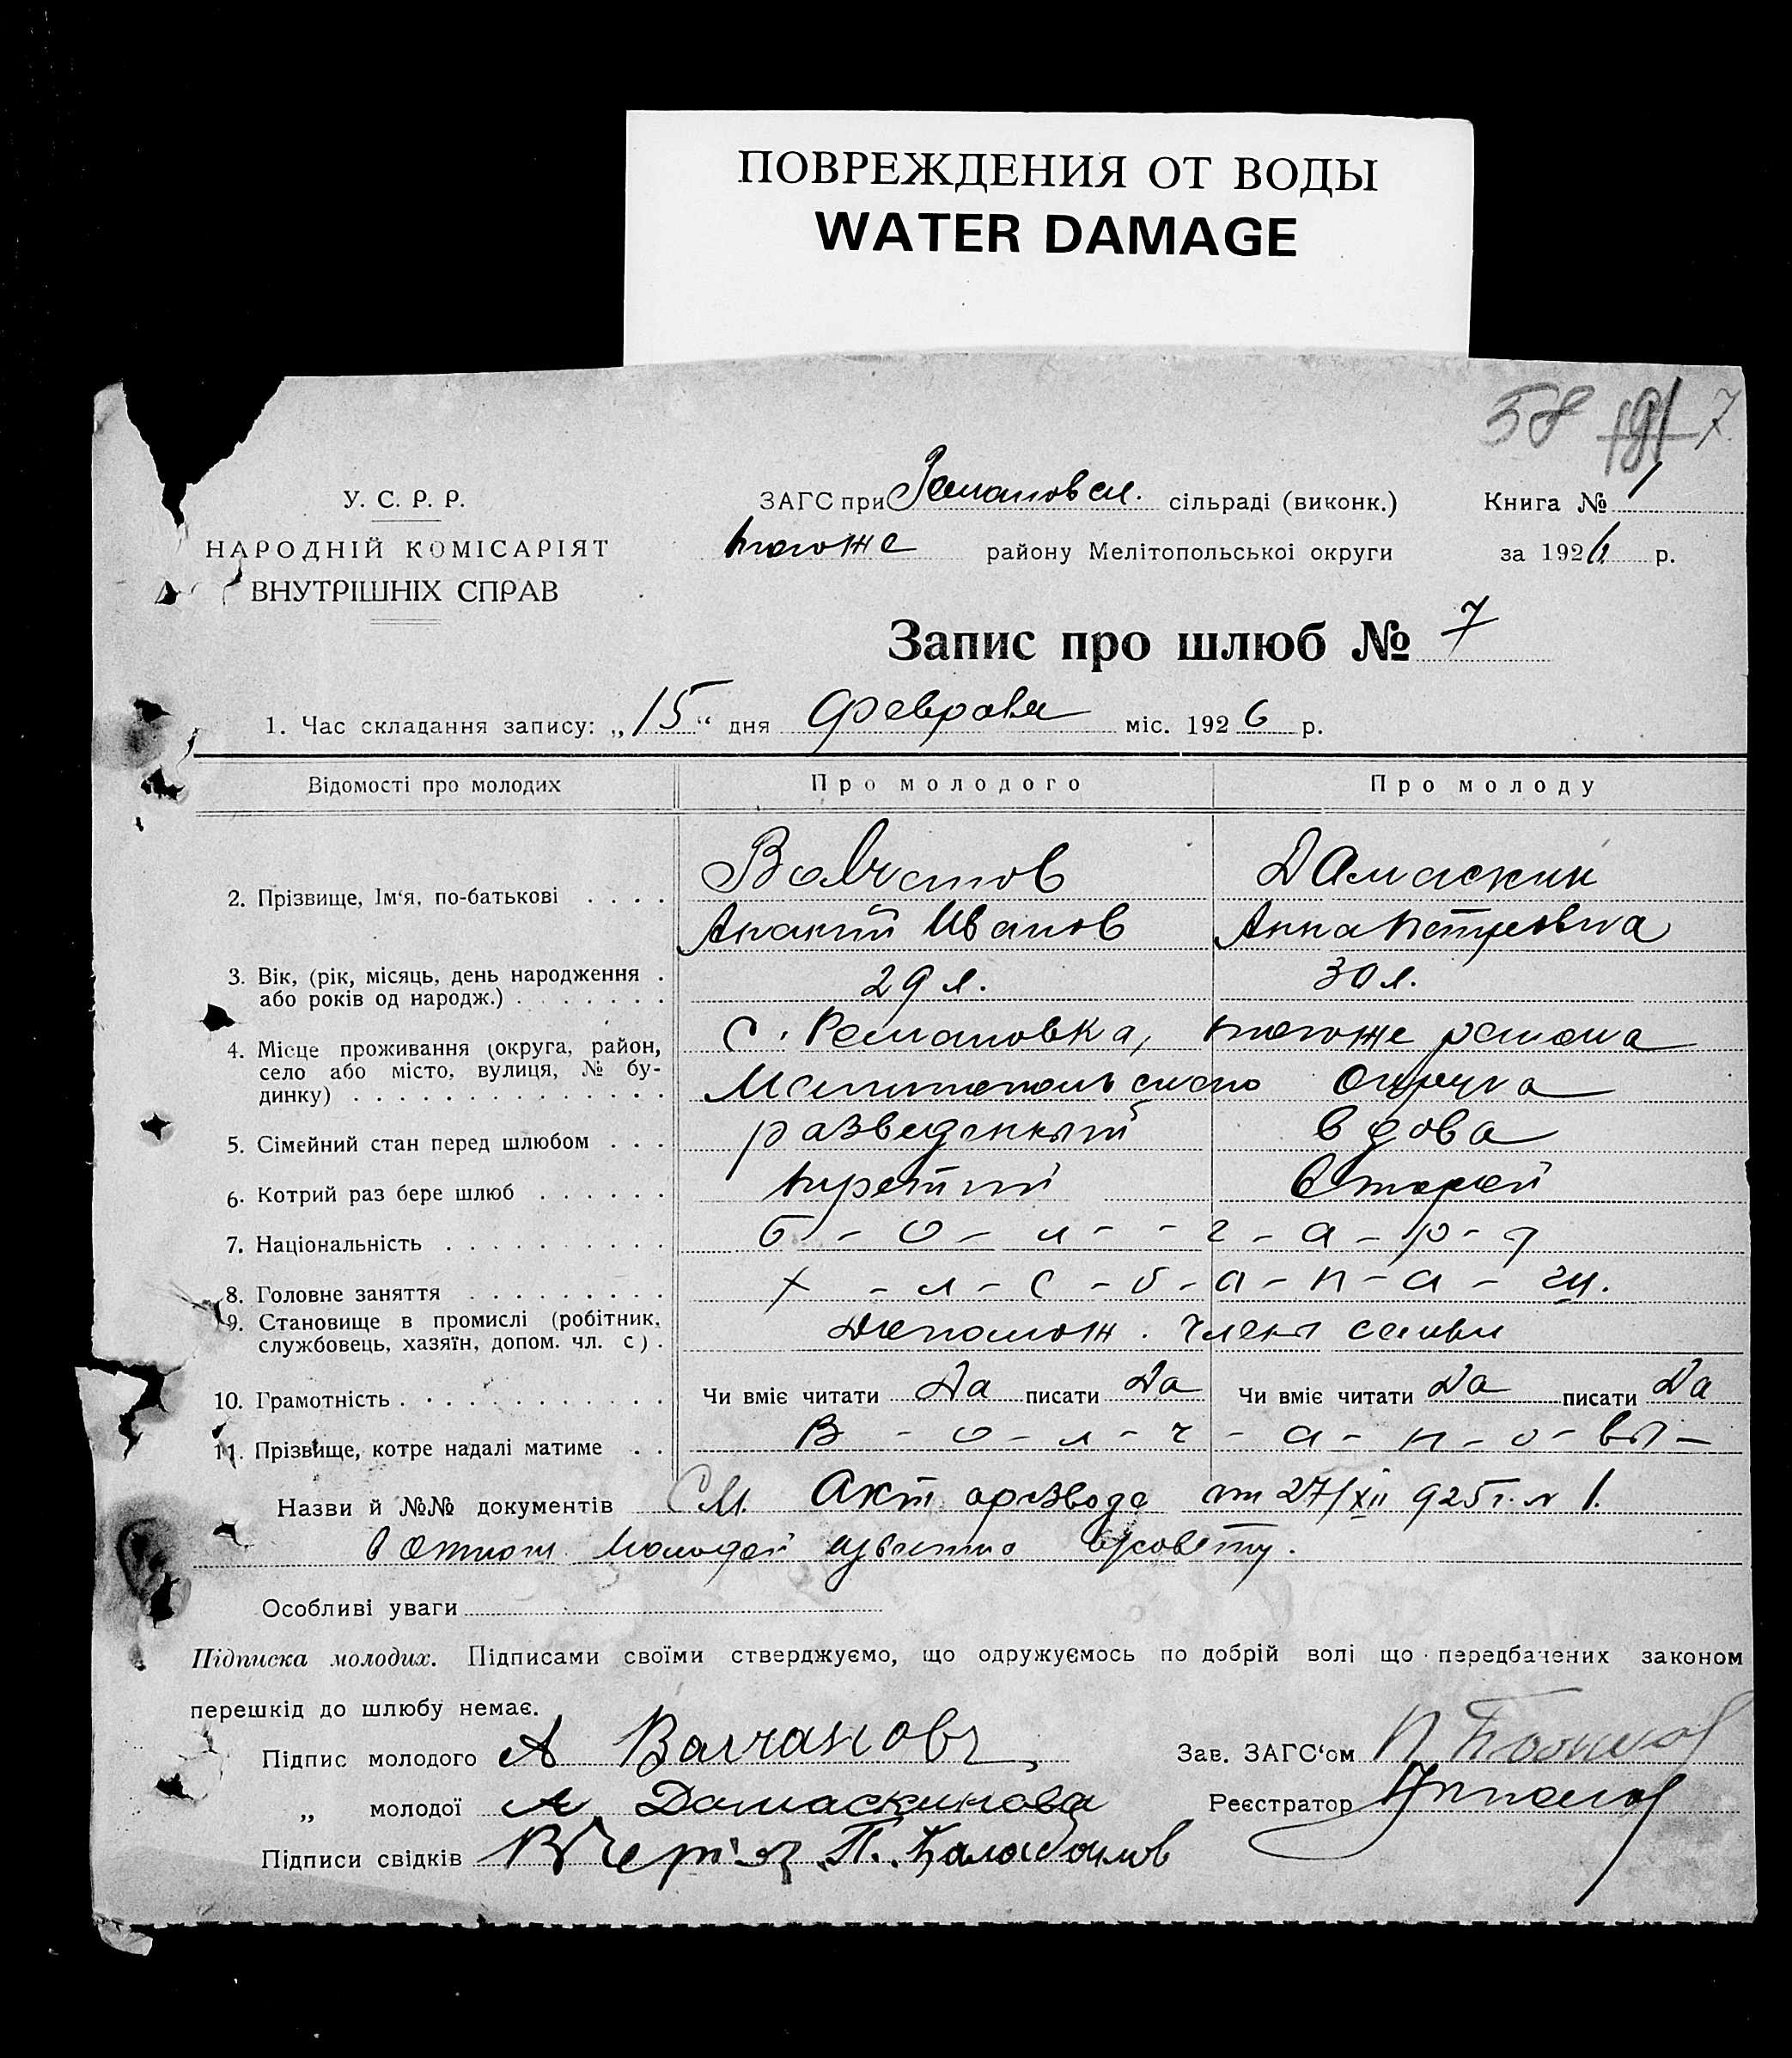 ПОВРЕЖДЕНИЯ ОТ ВОДЫ
WATER DAMAGE
58 191 7
У. С. Р. Р.
НАРОДНІЙ КОМІСАРІЯТ
ВНУТРІШНІХ СПРАВ
ЗАГС при сільраді (виконк.)
тогоже району Мелітопольської округи
Книга № 1
за 1926 р.
Запис про шлюб № 7
1. Час складання запису: „15“ дня Февраля міс. 1926 р.
Відомості про молодих Про молодого Про молоду
2. Прізвище, Ім‘я, по-батькові . . . . Волчанов Дамаскин
Акакий Иванов Анна Петровна
3. Вік, (рік, місяць, день народження . або років од народж.) . . . . . . . 29 л. 30 л.
4. Місце проживання (округа, район, село або місто, вулиця, № будинку) . . . . . . . . . . . . . . с. Романовка, тогоже района
Мелитопольского Округа
5. Сімейний стан перед шлюбом . . . разведенный вдова
6. Котрий раз бере шлюб . . . . . . третий Второй
7. Національність . . . . . . . . . . б - о - л - - г - а - р - 
8. Головне заняття . . . . . . . . . х - л - е - б - а - п - а - ш.
9. Становище в промислі (робітник, службовець, хазяїн, допом. чл. с) . Допомож. члены семьи
10. Грамотність . . . . . . . . . . . . Чи вміє читати Да писати Да Чи вміє читати Да писати Да
11. Прізвище, котре надалі матиме . . В - о - л - ч - а - н - о - вы -
Назви й №№ документів См. Акт развода от 27/XII 925 г. № 1.
в относ. молодой известно
Особливі уваги
Підписка молодих. Підписами своїми стверджуємо, що одружуємось по добрій волі що передбачених законом
перешкід до шлюбу немає.
Підпис молодого А Волчановъ Зав. ЗАГС‘ом
„ молодої А Домаскинова Реєстратор
Підписи свідків П.